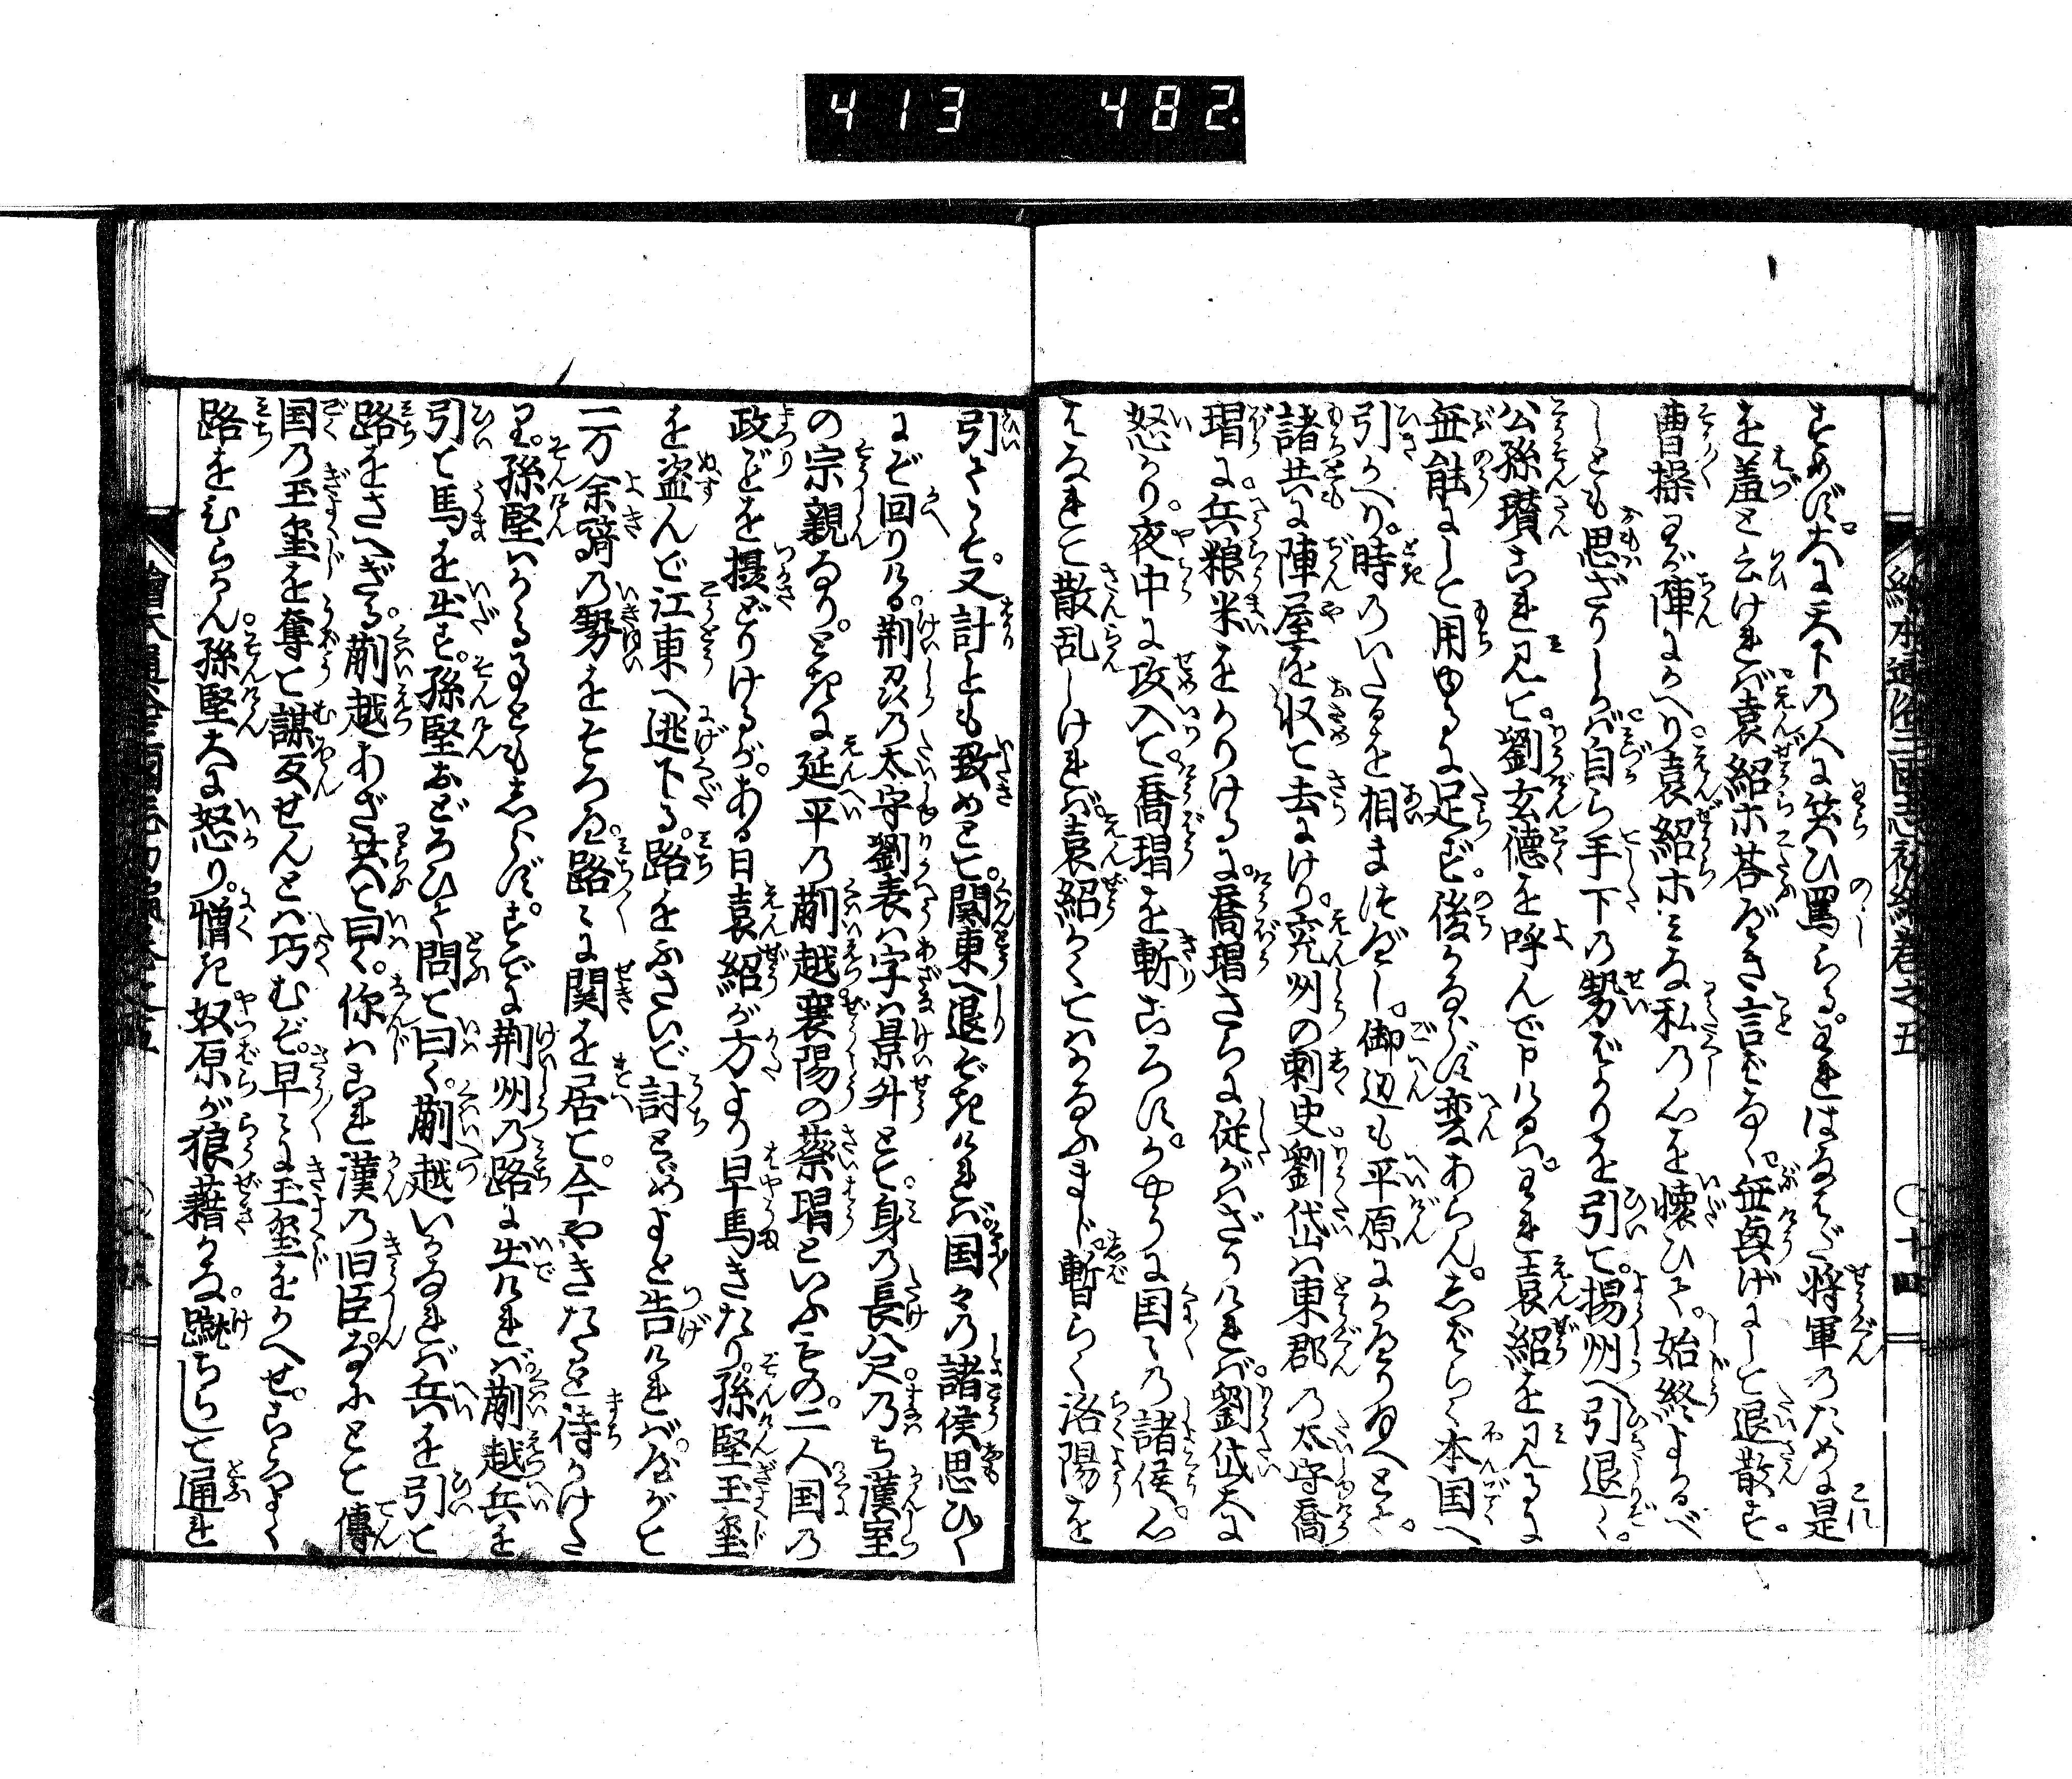 413 482.
絵本通俗三国志初編巻之五 〇十四
すめず。大に天下乃人に笑ひ罵らる。われはなはだ将軍乃ために是
を羞と云ければ。袁紹ホ荅べき言ばなく。無興げにして退散す。
曹操わが陣にかへり。袁紹ホミな私乃心を懐ひて。始終よかるべ
しとも思ざりしかば。自ら手下乃勢ばかりを引て。揚州へ引退く。
公孫瓚これを見て。劉玄徳を呼んで申けるハ。われ袁紹を見るに
無能にして用ゆるに足ず。後かならず変あらん。しばらく本国へ
引かへり。時乃いたるを相まつべし。御辺も平原にかへり玉へとて。
諸共に陣屋を収て去にけり。兗州の刺史劉岱ハ東郡乃太守喬
瑁に。兵粮米をかりけるに。喬瑁さらに従がハざりければ。劉岱大に
怒り。夜中に攻入て。喬瑁を斬ころす。かやうに国〻乃諸侯。心
〻なれて散乱しければ。袁紹かくてハかなふまじ。暫らく洛陽を
引さり。又計ともを改めて。関東へ退べきければ。国々乃諸侯思ひ〱
にぞ回りける。荊州乃太守劉表ハ字ハ景升とて。身乃長八尺。すなハち漢室
の宗親なり。ときに延平乃蒯越襄陽の蔡瑁といふもの。二人国乃
政どを摂どりけるが。ある日袁紹が方より早馬きたり。孫堅玉璽
を盗んで江東へ逃下る。路をふさいで討とめよと告ければ。急ぎ
一万余騎乃勢をそろへ。路〻に関を居て。今やきたると待かけた
り。孫堅ハかゝる事ともしらず。すでに荊州乃路に出ければ。蒯越兵を
引て馬を出す。孫堅おどろひて問て曰く。蒯越いかなれば兵を引て
路をさへぎる。蒯越あざ笑て曰く。你ハこれ漢乃旧臣なるに。とて傳
国乃玉璽を奪て謀反せんとハ巧むぞ。早〻に玉璽をかへせ。こゝろよく
路をひらかん。孫堅大に怒り。憎き奴原が狼藉かな。蹴ちらして通れ